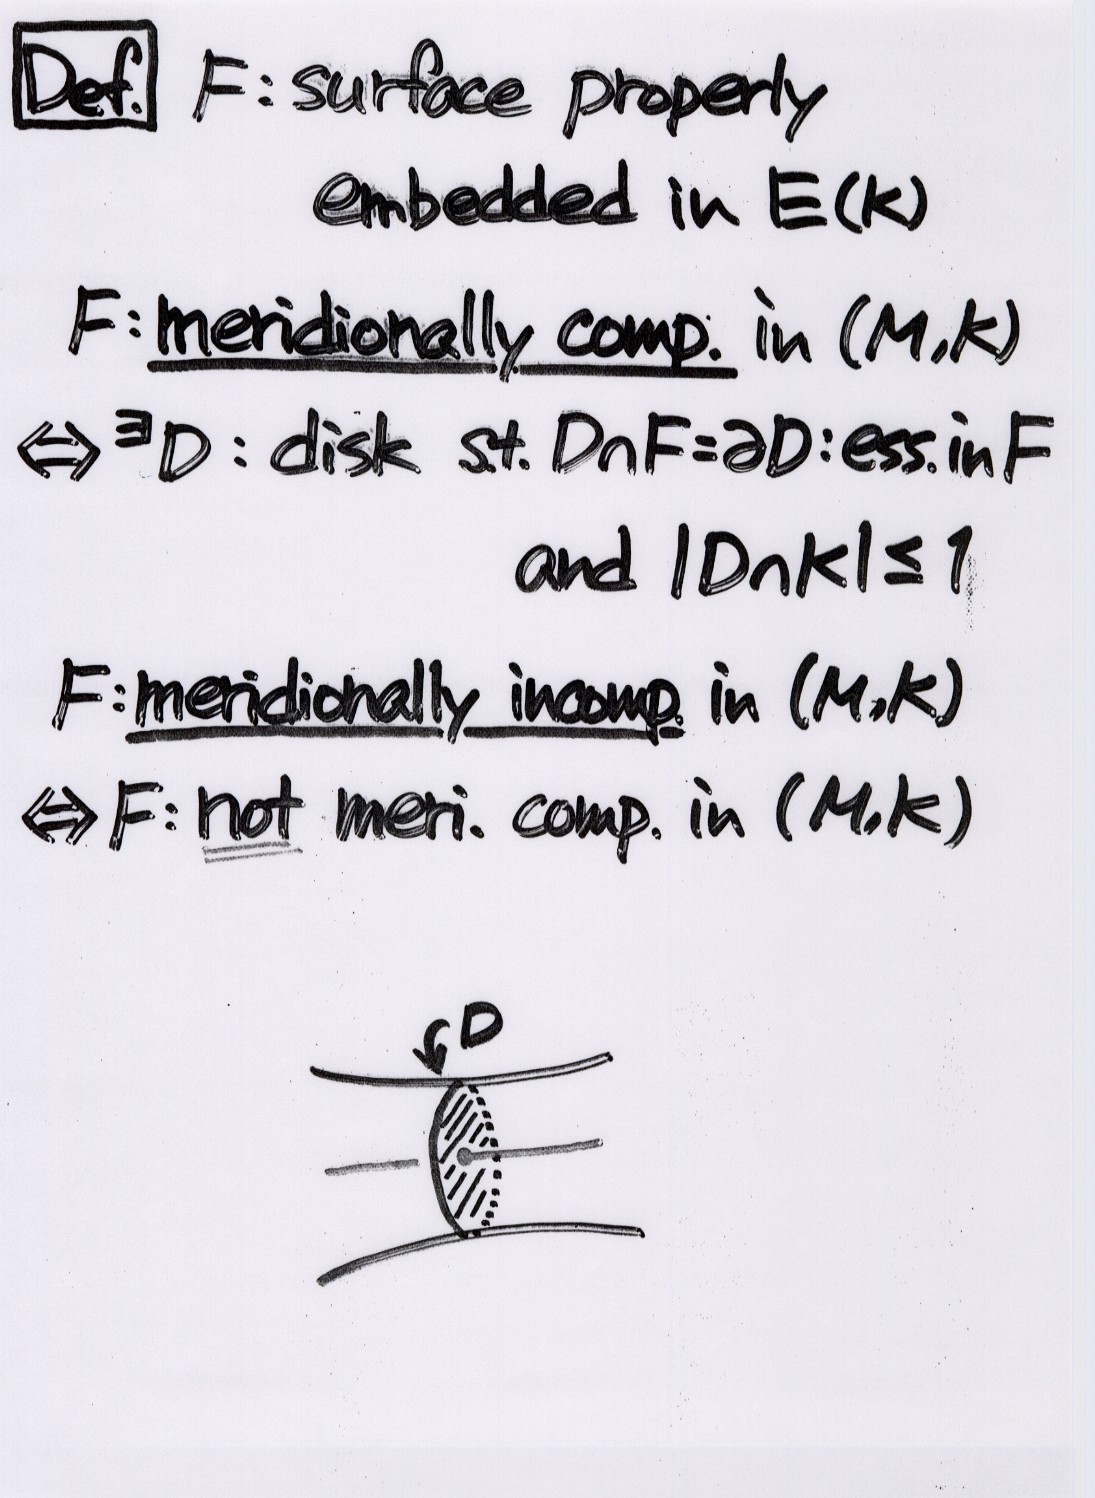 Def. F: surface properly
embedded in E(K)
F: meridionally comp. in (M,K)
⇔ ∃D: disk s.t. D∩F=∂D: ess. in F
and |D∩K|≤1
F: meridionally incomp. in (M,K)
⇔ F: not meri. comp. in (M,K)
D